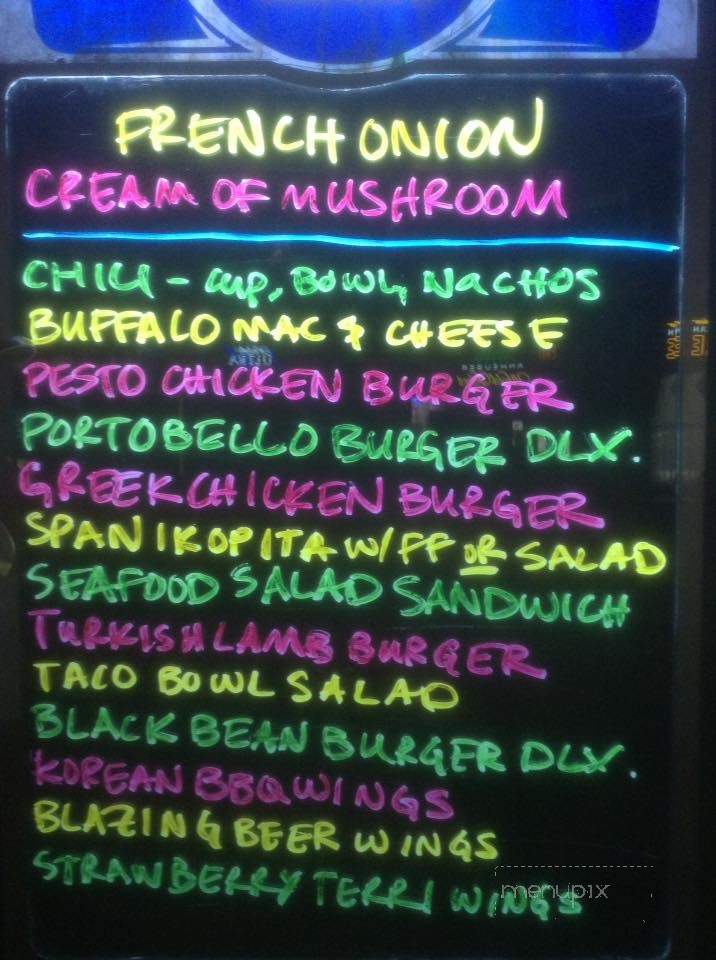 FRENCH ONION
CREAM OF MUSHROOM
CHILI - cup, BOWL, NACHOS
BUFFALO MAC & CHEESE
PESTO CHICKEN BURGER
PORTOBELLO BURGER DLX.
GREEK CHICKEN BURGER
SPANIKOPITA W/FF OR SALAD
SEAFOOD SALAD SANDWICH
TURKISH LAMB BURGER
TACO BOWL SALAD
BLACK BEAN BURGER DLX.
KOREAN BBQ WINGS
BLAZING BEER WINGS
STRAWBERRY TERRI WINGS
menupix